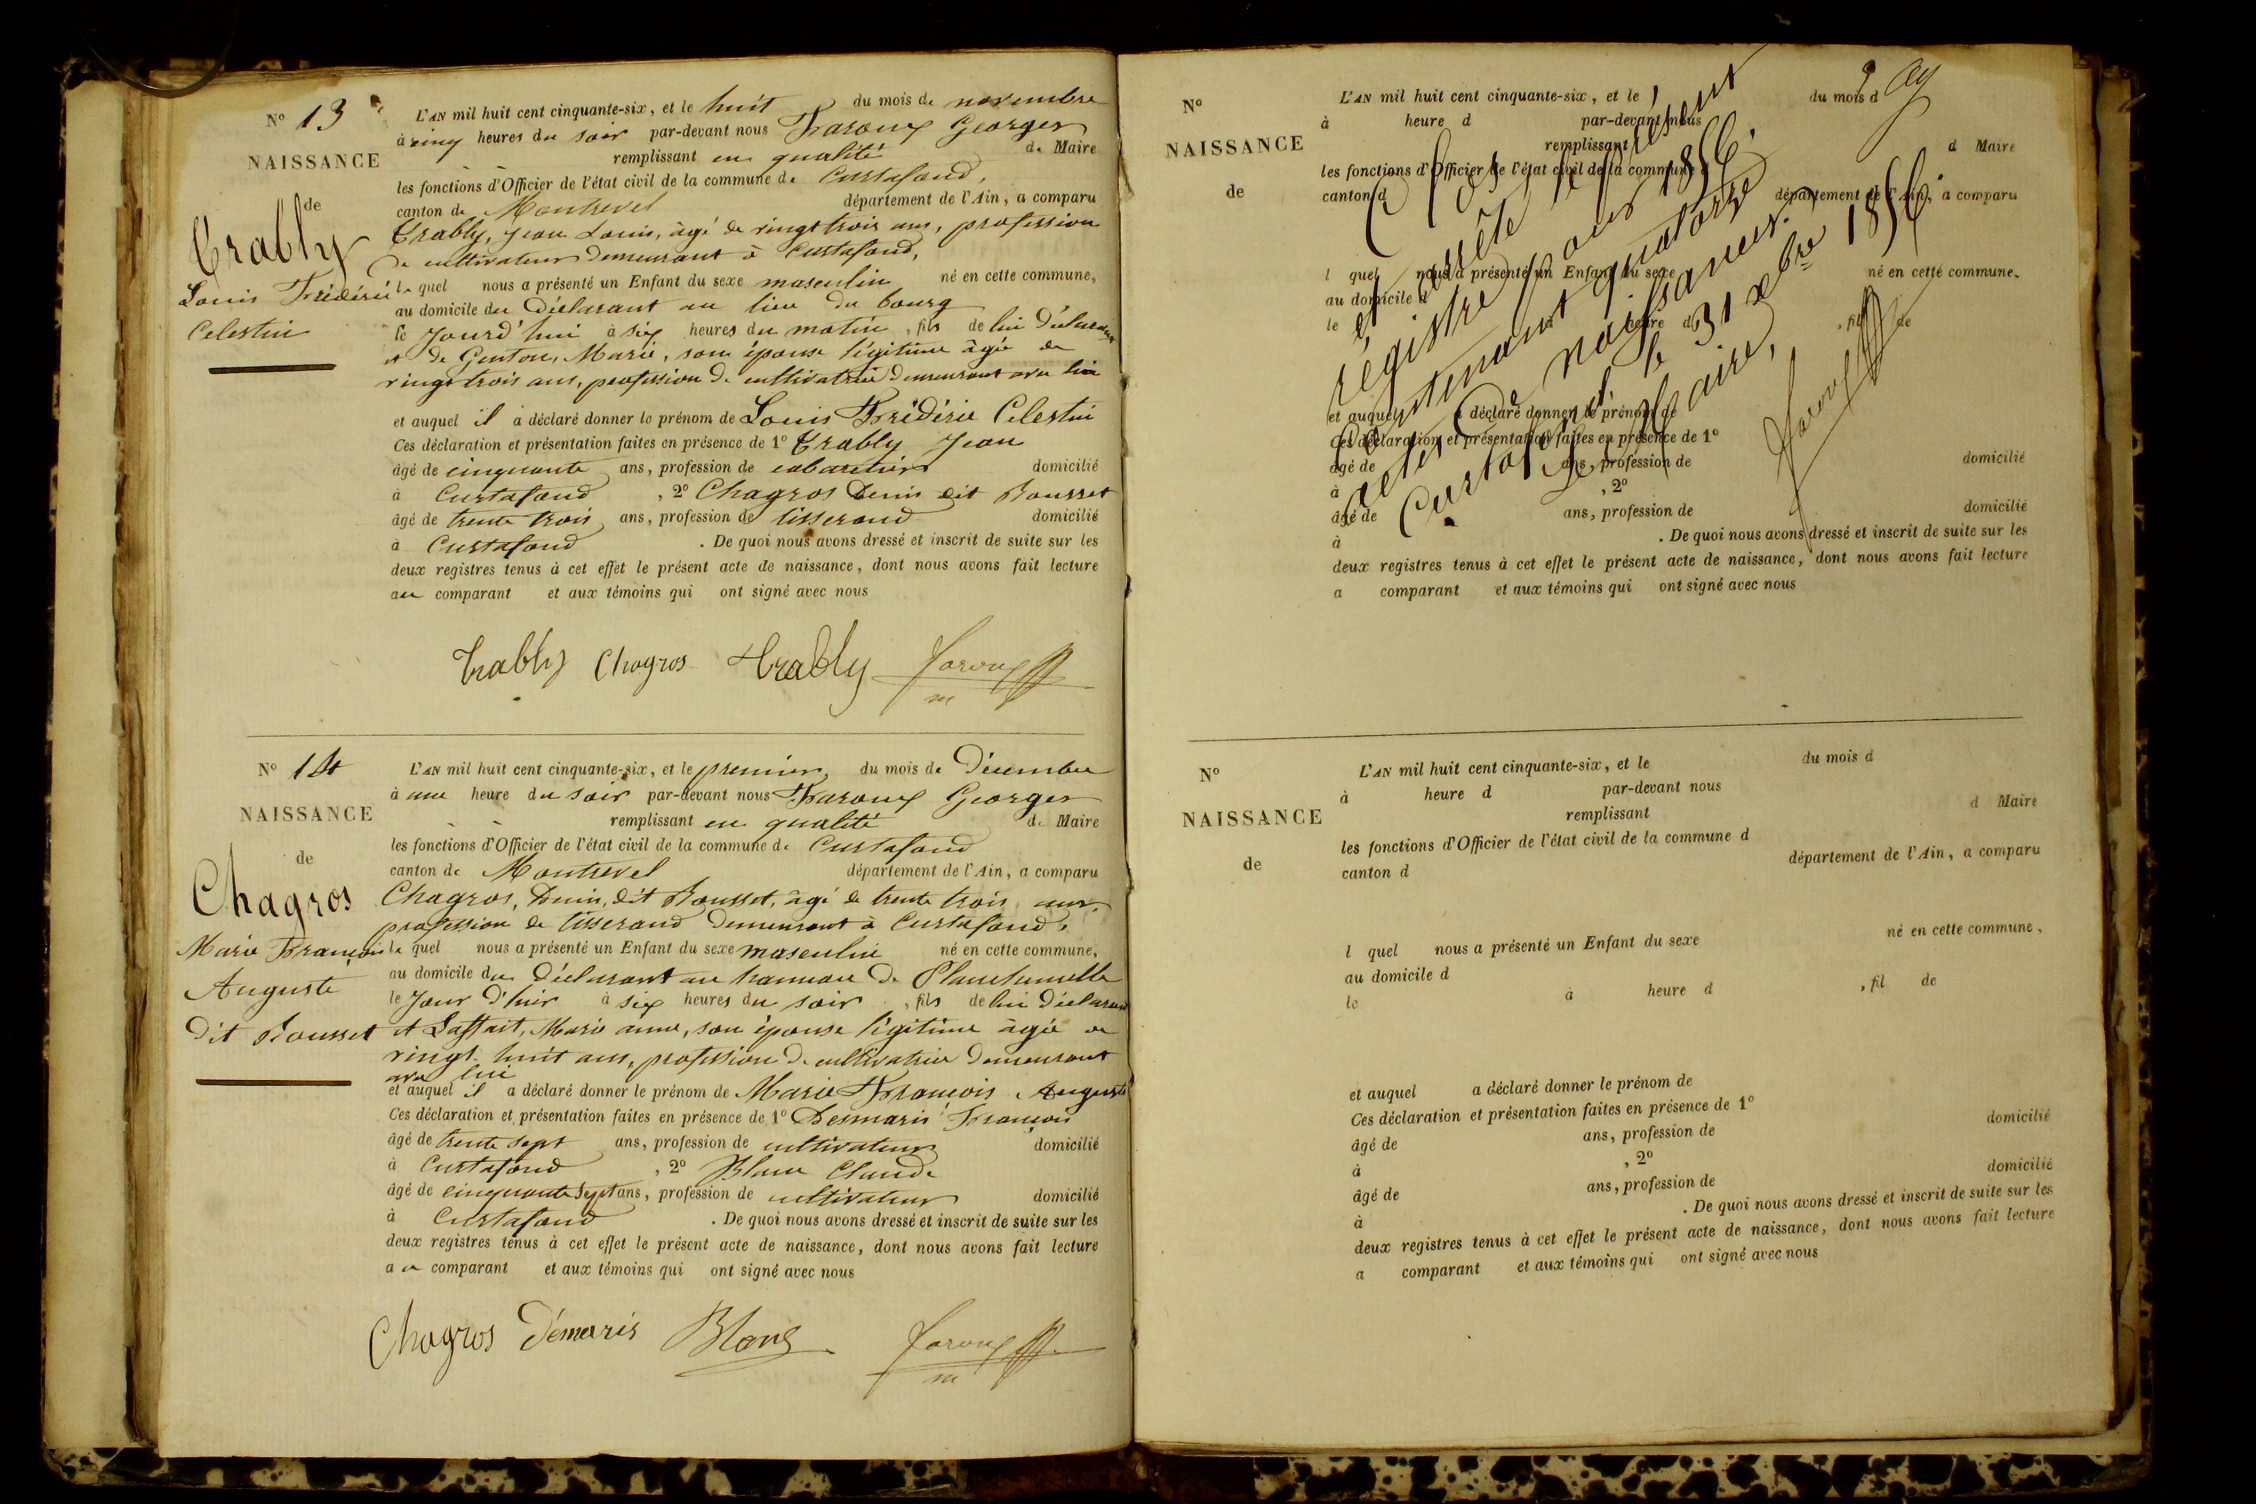 N° 13
NAISSANCE
de
Crably
Louis Frédéric
Celestin
L'AN mil huit cent cinquante-six, et le huit du mois de novembre
à cinq heures du soir par-devant nous Faroux Georges
remplissant en qualité de Maire
les fonctions d'Officier de l'état civil de la commune de Curtafond,
canton de Montrevel département de l'Ain, a comparu
Crably, Jean Louis, âgé de vingt trois ans, profession
de cultivateur demeurant à Curtafond,
le quel nous a présenté un Enfant du sexe masculin né en cette commune,
au domicile du Déclarant au lieu du bourg
le Jourd'hui à six heures du matin, fils de lui Déclarant
et de Guston, Marie, son épouse légitime âgée de
vingt trois ans, profession de cultivatrice demeurant avec lui
et auquel il a déclaré donner le prénom de Louis Frédéric Celestin
Ces déclaration et présentation faites en présence de 1° Crably Jean
âgé de cinquante ans, profession de cabaretier domicilié
à Curtafond, 2° Chagros Denis dit Bousset
âgé de trente trois ans, profession de tisserand domicilié
à Curtafond. De quoi nous avons dressé et inscrit de suite sur les
deux registres tenus à cet effet le présent acte de naissance, dont nous avons fait lecture
au comparant et aux témoins qui ont signé avec nous
Crably Chagros Crably faroux
m
N° 14
NAISSANCE
de
Chagros
Marie François
Auguste
dit Bousset
L'AN mil huit cent cinquante-six, et le premier du mois de Décembre
à une heure du soir par-devant nous Faroux Georges
remplissant en qualité de Maire
les fonctions d'Officier de l'état civil de la commune de Curtafond
canton de Montrevel département de l'Ain, a comparu
Chagros, Denis, dit Bousset, âgé de trente trois ans,
profession de tisserand demeurant à Curtafond,
le quel nous a présenté un Enfant du sexe masculin né en cette commune,
au domicile du Déclarant au hameau de
le Jour d'hier à six heures du soir, fils de lui Déclarant
et Marie anne, son épouse légitime âgée de
vingt huit ans, profession de cultivatrice demeurant
avec lui
et auquel il a déclaré donner le prénom de Marie François Auguste
Ces déclaration et présentation faites en présence de 1° Desmaris François
âgé de trente sept ans, profession de cultivateur domicilié
à Curtafond, 2° Blanc Claude
âgé de cinquante sept ans, profession de cultivateur domicilié
à Curtafond. De quoi nous avons dressé et inscrit de suite sur les
deux registres tenus à cet effet le présent acte de naissance, dont nous avons fait lecture
au comparant et aux témoins qui ont signé avec nous
Chagros Démaris Blanc faroux
m
N°
NAISSANCE
de
L'AN mil huit cent cinquante-six, et le du mois d
à heure d par-devant nous
remplissant d Maire
les fonctions d'Officier de l'état civil de la commune d
canton d département de l'Ain, a comparu
l quel nous a présenté un Enfant du sexe né en cette commune,
au domicile d
le à heure d, fil de
et auquel a déclaré donner le prénom de
Ces déclaration et présentation faites en présence de 1°
âgé de ans, profession de domicilié
à, 2°
âgé de ans, profession de domicilié
à. De quoi nous avons dressé et inscrit de suite sur les
deux registres tenus à cet effet le présent acte de naissance, dont nous avons fait lecture
a comparant et aux témoins qui ont signé avec nous
Clos
et arrêté le présent
régistre pour 1856.
Contenant quatorze
actes de naissances.
Curtafond, le 31 xbre 1856
Le Maire,
faroux
N°
NAISSANCE
de
L'AN mil huit cent cinquante-six, et le du mois d
à heure d par-devant nous
remplissant d Maire
les fonctions d'Officier de l'état civil de la commune d
canton d département de l'Ain, a comparu
l quel nous a présenté un Enfant du sexe né en cette commune,
au domicile d
le à heure d, fil de
et auquel a déclaré donner le prénom de
Ces déclaration et présentation faites en présence de 1°
âgé de ans, profession de domicilié
à, 2°
âgé de ans, profession de domicilié
à. De quoi nous avons dressé et inscrit de suite sur les
deux registres tenus à cet effet le présent acte de naissance, dont nous avons fait lecture
a comparant et aux témoins qui ont signé avec nous